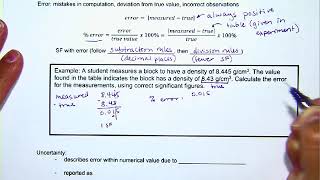 Error: mistakes in computation, deviation from true value, incorrect observations
error = |measured − true| → always positive
% error = error / true value x 100% = |measured − true| / true x 100% → table (given in experiment)
SF with error (follow subtraction rules, then division rules)
(decimal places) (fewer SF)
Example: A student measures a block to have a density of 8.445 g/cm³. The value
found in the table indicates the block has a density of 8.43 g/cm³. Calculate the error
for the measurements, using correct significant figures. true
measured 8.445
- true 8.43
0.015
1 SF
% error: 0.015
Uncertainty:
- describes error within numerical value due to
- reported as